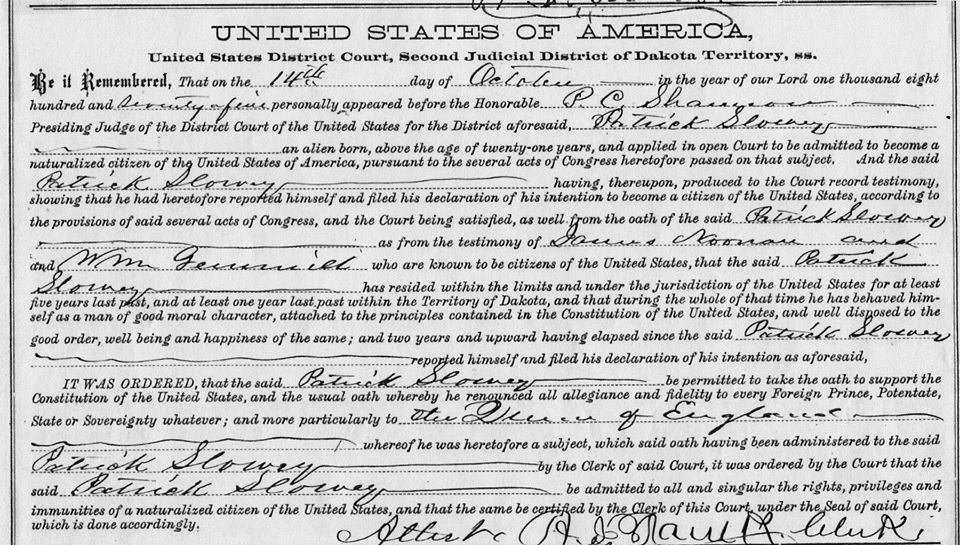 UNITED STATES OF AMERICA,
United States District Court, Second Judicial District of Dakota Territory, ss.
Be it Remembered, That on the 14th day of October in the year of our Lord one thousand eight
hundred and seventy-five personally appeared before the Honorable P. C. Shannon
Presiding Judge of the District Court of the United States for the District aforesaid, Patrick Slowey
an alien born, above the age of twenty-one years, and applied in open Court to be admitted to become a
naturalized citizen of the United States of America, pursuant to the several acts of Congress heretofore passed on that subject. And the said
Patrick Slowey having, thereupon, produced to the Court record testimony,
showing that he had heretofore reported himself and filed his declaration of his intention to become a citizen of the United States, according to
the provisions of said several acts of Congress, and the Court being satisfied, as well from the oath of the said Patrick Slowey
as from the testimony of James Noonan and
and Wm who are known to be citizens of the United States, that the said Patrick
Slowey has resided within the limits and under the jurisdiction of the United States for at least
five years last past, and at least one year last past within the Territory of Dakota, and that during the whole of that time he has behaved him-
self as a man of good moral character, attached to the principles contained in the Constitution of the United States, and well disposed to the
good order, well being and happiness of the same; and two years and upward having elapsed since the said Patrick Slowey
reported himself and filed his declaration of his intention as aforesaid,
IT WAS ORDERED, that the said Patrick Slowey be permitted to take the oath to support the
Constitution of the United States, and the usual oath whereby he renounced all allegiance and fidelity to every Foreign Prince, Potentate,
State or Sovereignty whatever; and more particularly to the Queen of England
whereof he was heretofore a subject, which said oath having been administered to the said
Patrick Slowey by the Clerk of said Court, it was ordered by the Court that the
said Patrick Slowey be admitted to all and singular the rights, privileges and
immunities of a naturalized citizen of the United States, and that the same be certified by the Clerk of this Court, under the Seal of said Court,
which is done accordingly.
Attest Clerk